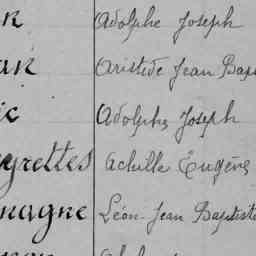 n Adolphe Joseph
an Aristide Jean Bap
ic Adolphe Joseph
yrettes Achille Eugène
magne Léon Jean Baptiste